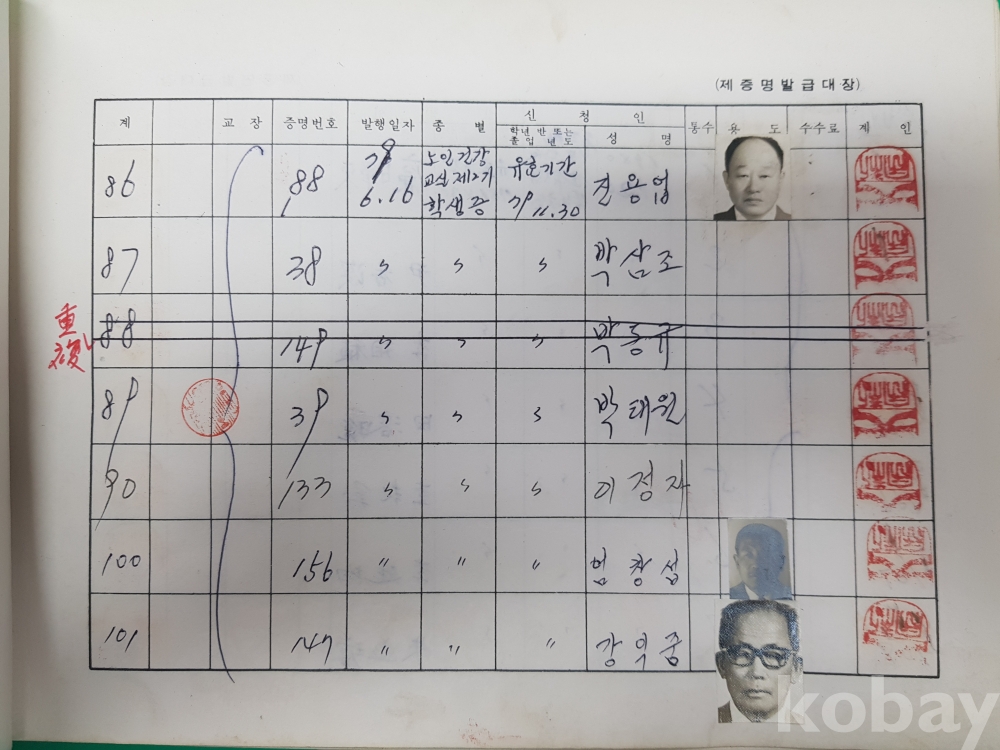 (제증명발급대장)
계 교장 증명번호 발행일자 종별 신청인 통수 용도 수수료 계인
학년 반 또는 졸업년도 성명
86 88 79 6.16 노인건강교실 제2기 학생증 유효기간 79 11.30 용업
87 38 〃 〃 〃 박삼조
重複 88 149 〃 〃 〃 박동규
89 39 〃 〃 〃 박태원
90 133 〃 〃 〃 이정자
100 156 〃 〃 〃 창섭
101 147 〃 〃 〃 강익중
kobay